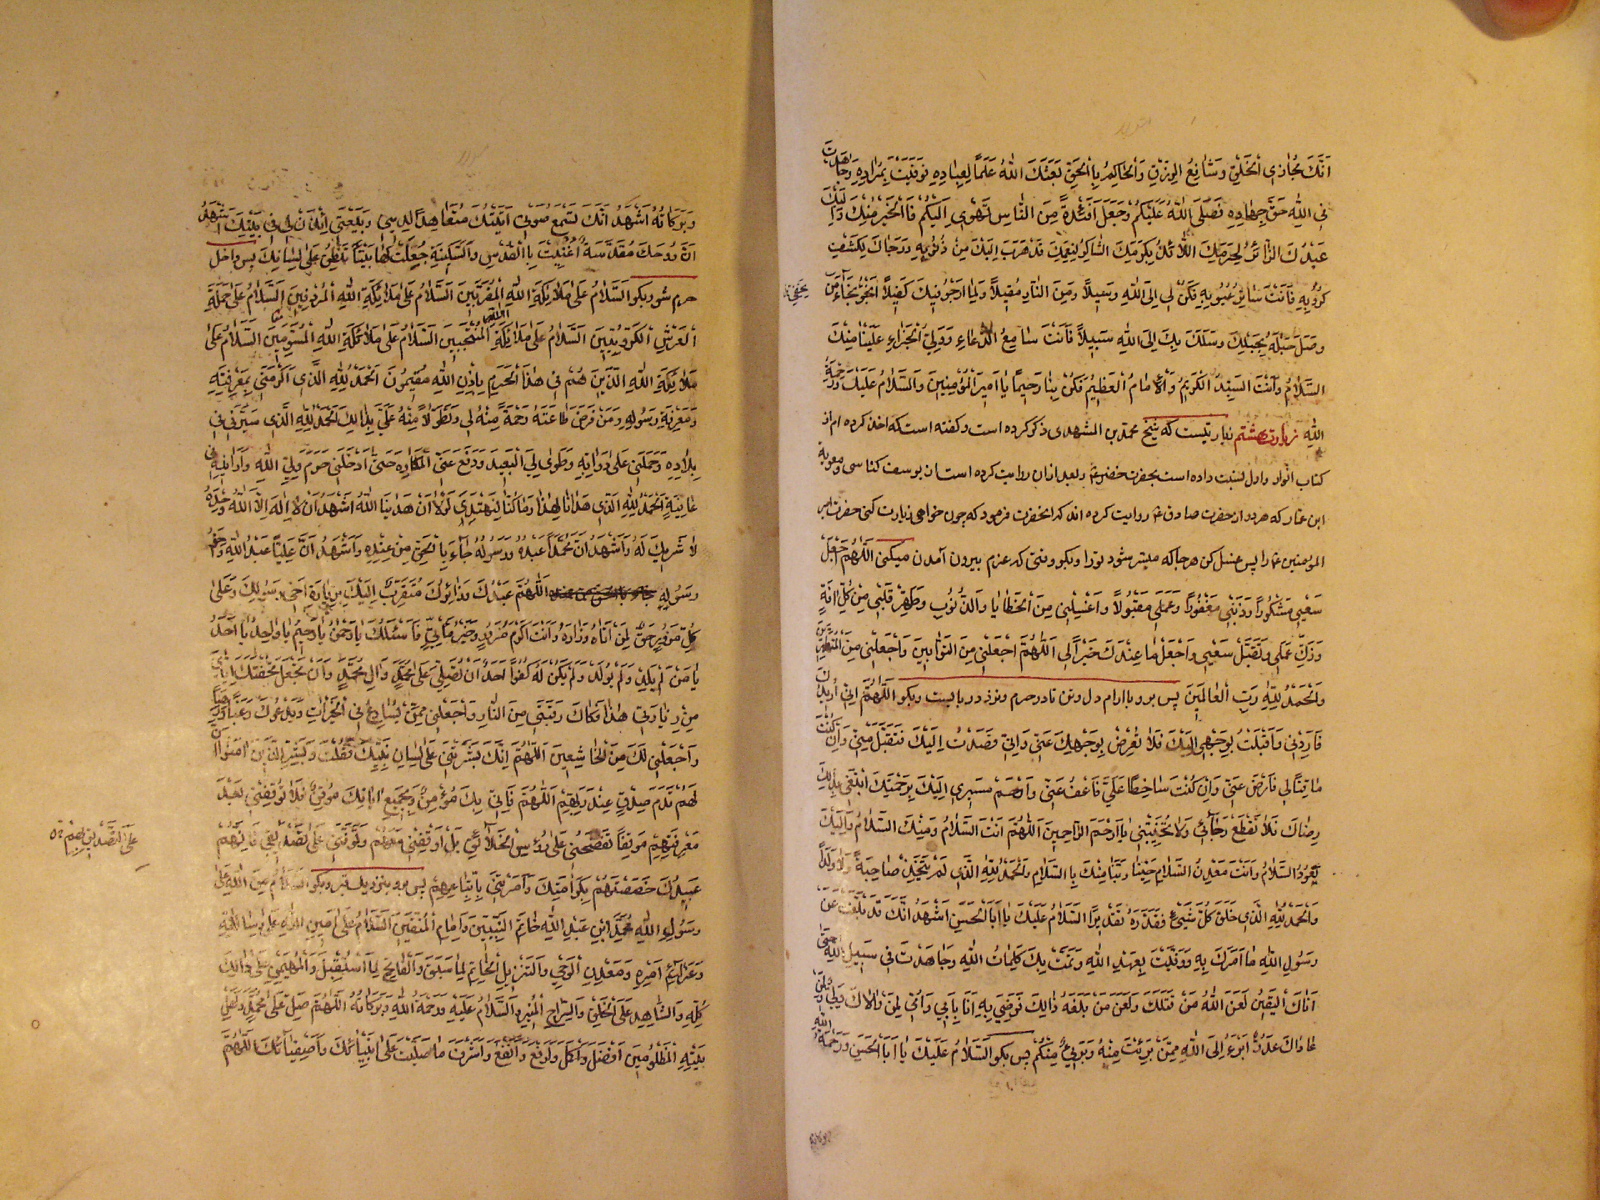 انك مجازي الخلق وشافع الرزق والحاكم بالحق بعثك الله علما لعباده فوفيت بمراده وجاهدت
في الله حق جهاده فصلى الله عليكم وجعل افئدة من الناس تهوي اليكم فالخير منك واليك
عبدك الزائر لحرمك اللائذ بكرمك الشاكر لنعمك قد هرب اليك من ذنوبه ورجاك لكشف
كروبه فانت ساتر عيوبه فكن لي الى الله سبيلا ومن النار مقيلا ولما ارجو فيك كفيلا انجو نجاة من
وصل حبله بحبلك وسلك بك الى الله سبيلا فانت سامع الدعاء وولي الجزاء علينا منك
السلام وانت السيد الكريم والامام العظيم فكن بنا رحيما يا امير المؤمنين والسلام عليك ورحمة
الله زيارت هشتم زيارتيست كه شيخ محمد بن المشهدي ذكر كرده است وكفته است كه اخذ كرده ام از
كتاب انوار واول نسبت داده است بحضرت خضر وبعد ازان روايت كرده است از يوسف كناسي ومعوية
ابن عمار كه هر دو از حضرت صادق روايت كرده اند كه انحضرت فرمود كه چون خواهي زيارت كني حضرت امير
المومنين را پس غسل كن هر جا كه ميسر شود تورا وبكو وقتي كه عزم بيرون آمدن ميكني اللهم اجعل
سعيي مشكورا وذنبي مغفورا وعملي مقبولا واغسلني من الخطايا والذنوب وطهر قلبي من كل افة
وزك عملي وتقبل سعيي واجعل ما عندك خيرا لي اللهم اجعلني من التوابين واجعلني من المتطهرين
والحمد لله رب العالمين پس برو با ارام دل وتن تا در حرم ونزد در بايست وبكو اللهم اني اريدك
فاردني واقبلت بوجهي اليك فلا تعرض بوجهك عني واني قصدت اليك فتقبل مني وان كنت
ماقتا لي فارض عني وان كنت ساخطا علي فاعف عني وارحم مسيري اليك برحمتك ابتغي بذلك
رضاك فلا تقطع رجائي ولا تخيبني يا ارحم الراحمين اللهم انت السلام ومنك السلام واليك
يعود السلام وانت معدن السلام حينا ربنا منك بالسلام والحمد لله الذي لم يتخذ صاحبة ولا ولدا
والحمد لله الذي خلق كل شيء فقدره تقديرا السلام عليك يا ابا الحسن اشهد انك قد بلغت عن
رسول الله ما امرك به ووفيت بعهد الله وتمت بك كلمات الله وجاهدت في سبيل الله حتى
اتاك اليقين لعن الله من قتلك ولعن من بلغه ذلك فرضي به انا بابي وامي لمن والاك ولي ولمن
عاداك عدو ابرء الى الله ممن برئت منه وبرئ منكم پس بكو السلام عليك يا ابا الحسن ورحمة الله
وبركاته اشهد انك تسمع صوتي اتيتك متعاهدا لديني وبيعتي ائذن لي في بيتك اشهد
ان روحك مقدسة اعينت بالقدس والسكينة جعلت لها بيتا تنطق على لسانك پس داخل
حرم شو وبكو السلام على ملائكة الله المقربين السلام على ملائكة الله المردفين السلام على حملة
العرش الكروبيين السلام على ملائكة الله المنتجبين السلام على ملائكة الله المسومين السلام على
ملائكة الله الذين هم في هذا الحرم باذن الله مقيمون الحمد لله الذي اكرمني بمعرفته
ومعرفة رسوله ومن فرض طاعته رحمة منه لي وتطولا منه علي بذلك الحمد لله الذي سيرني في
بلاده وحملني على دوابه وطوى لي البعيد ودفع عني المكاره حتى ادخلني حرم ولي الله واراني في
عافية الحمد لله الذي هدانا لهذا وما كنا لنهتدي لولا ان هدينا الله اشهد ان لا اله الا الله وحده
لا شريك له واشهد ان محمدا عبده ورسوله جاء بالحق من عنده واشهد ان عليا عبد الله واخو
رسوله اللهم عبدك وزائرك متقرب اليك بزيارة اخي رسولك وعلى
كل مزور حق لمن اتاه وزاره وانت اكرم مزور وخير ماتي فاسئلك يا رحمن يا رحيم يا واحد يا احد
يا من لم يلد ولم يولد ولم يكن له كفوا احد ان تصلي على محمد وال محمد وان تجعل تحفتك اياي
من زيارتي هذا فكاك رقبتي من النار واجعلني ممن يسارع في الخيرات ويدعوك رغبا ورهبا
واجعلني لك من الخاشعين اللهم انك بشرتني على لسان نبيك فقلت وبشر الذين امنوا ان
لهم قدم صدق عند ربهم اللهم فاني بك مؤمن وبجميع اياتك موقن فلا توقفني بعد
معرفتهم موقفا تفضحني على رؤس الخلائق بل اوقفني معهم وتوفني على تصديقي فانهم
عبيدك خصصتهم بكرامتك وامرتني باتباعهم پس برو بنزديك قبر وبكو السلام من الله على
رسول الله محمد ابن عبد الله خاتم النبيين وامام المتقين السلام على امين الله على رسالاته
وعزائم امره ومعدن الوحي والتنزيل الخاتم لما سبق والفاتح لما استقبل والمهيمن على ذلك
كله والشاهد على الخلق والسراج المنير والسلام عليه ورحمة الله وبركاته اللهم صل على محمد وعلى
بيته المظلومين افضل واكمل وارفع وانفع واشرف ما صليت على انبيائك واصفيائك اللهم